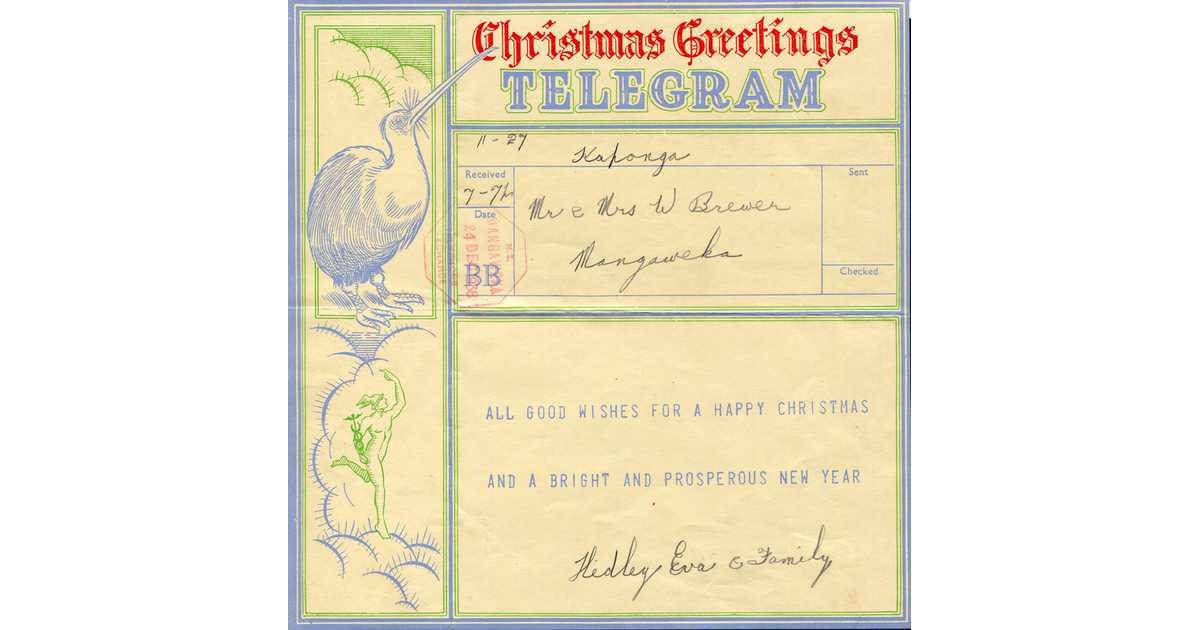 Christmas Greetings
TELEGRAM
11-27
Kaponga
Received
Sent
Mr & Mrs W Brewer
Date
N.Z.
24 DE
BB
Mangaweka
Checked
ALL GOOD WISHES FOR A HAPPY CHRISTMAS
AND A BRIGHT AND PROSPEROUS NEW YEAR
Hedley Eva & Family